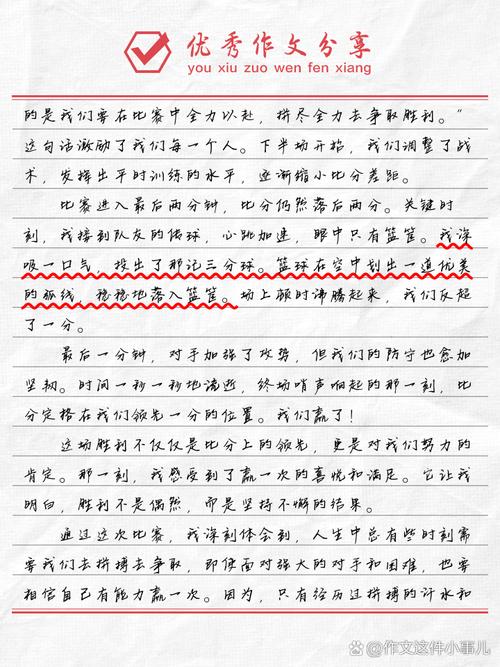 优秀作文分享
you xiu zuo wen fen xiang
的是我们要在比赛中全力以赴，拼尽全力去争取胜利。”
这句话激励了我们每一个人。下半场开始，我们调整了战
术，发挥出平时训练的水平，逐渐缩小比分差距。
比赛进入最后两分钟，比分仍然落后两分。关键时
刻，我接到队友的传球，心跳加速，眼中只有篮筐。我深
吸一口气，投出了那记三分球。篮球在空中划出一道优美
的弧线，稳稳地落入篮筐。场上顿时沸腾起来，我们反超
了一分。
最后一分钟，对手加强了攻势，但我们的防守也愈加
坚韧。时间一秒一秒地流逝，终场哨声响起的那一刻，比
分定格在我们领先一分的位置。我们赢了！
这场胜利不仅仅是比分上的领先，更是对我们努力的
肯定。那一刻，我感受到了赢一次的喜悦和满足。它让我
明白，胜利不是偶然，而是坚持不懈的结果。
通过这次比赛，我深刻体会到，人生中总有些时刻需
要我们去拼搏去争取，即使面对强大的对手和困难，也要
相信自己有能力赢一次。因为，只有经历过拼搏的汗水和
@作文这件小事儿